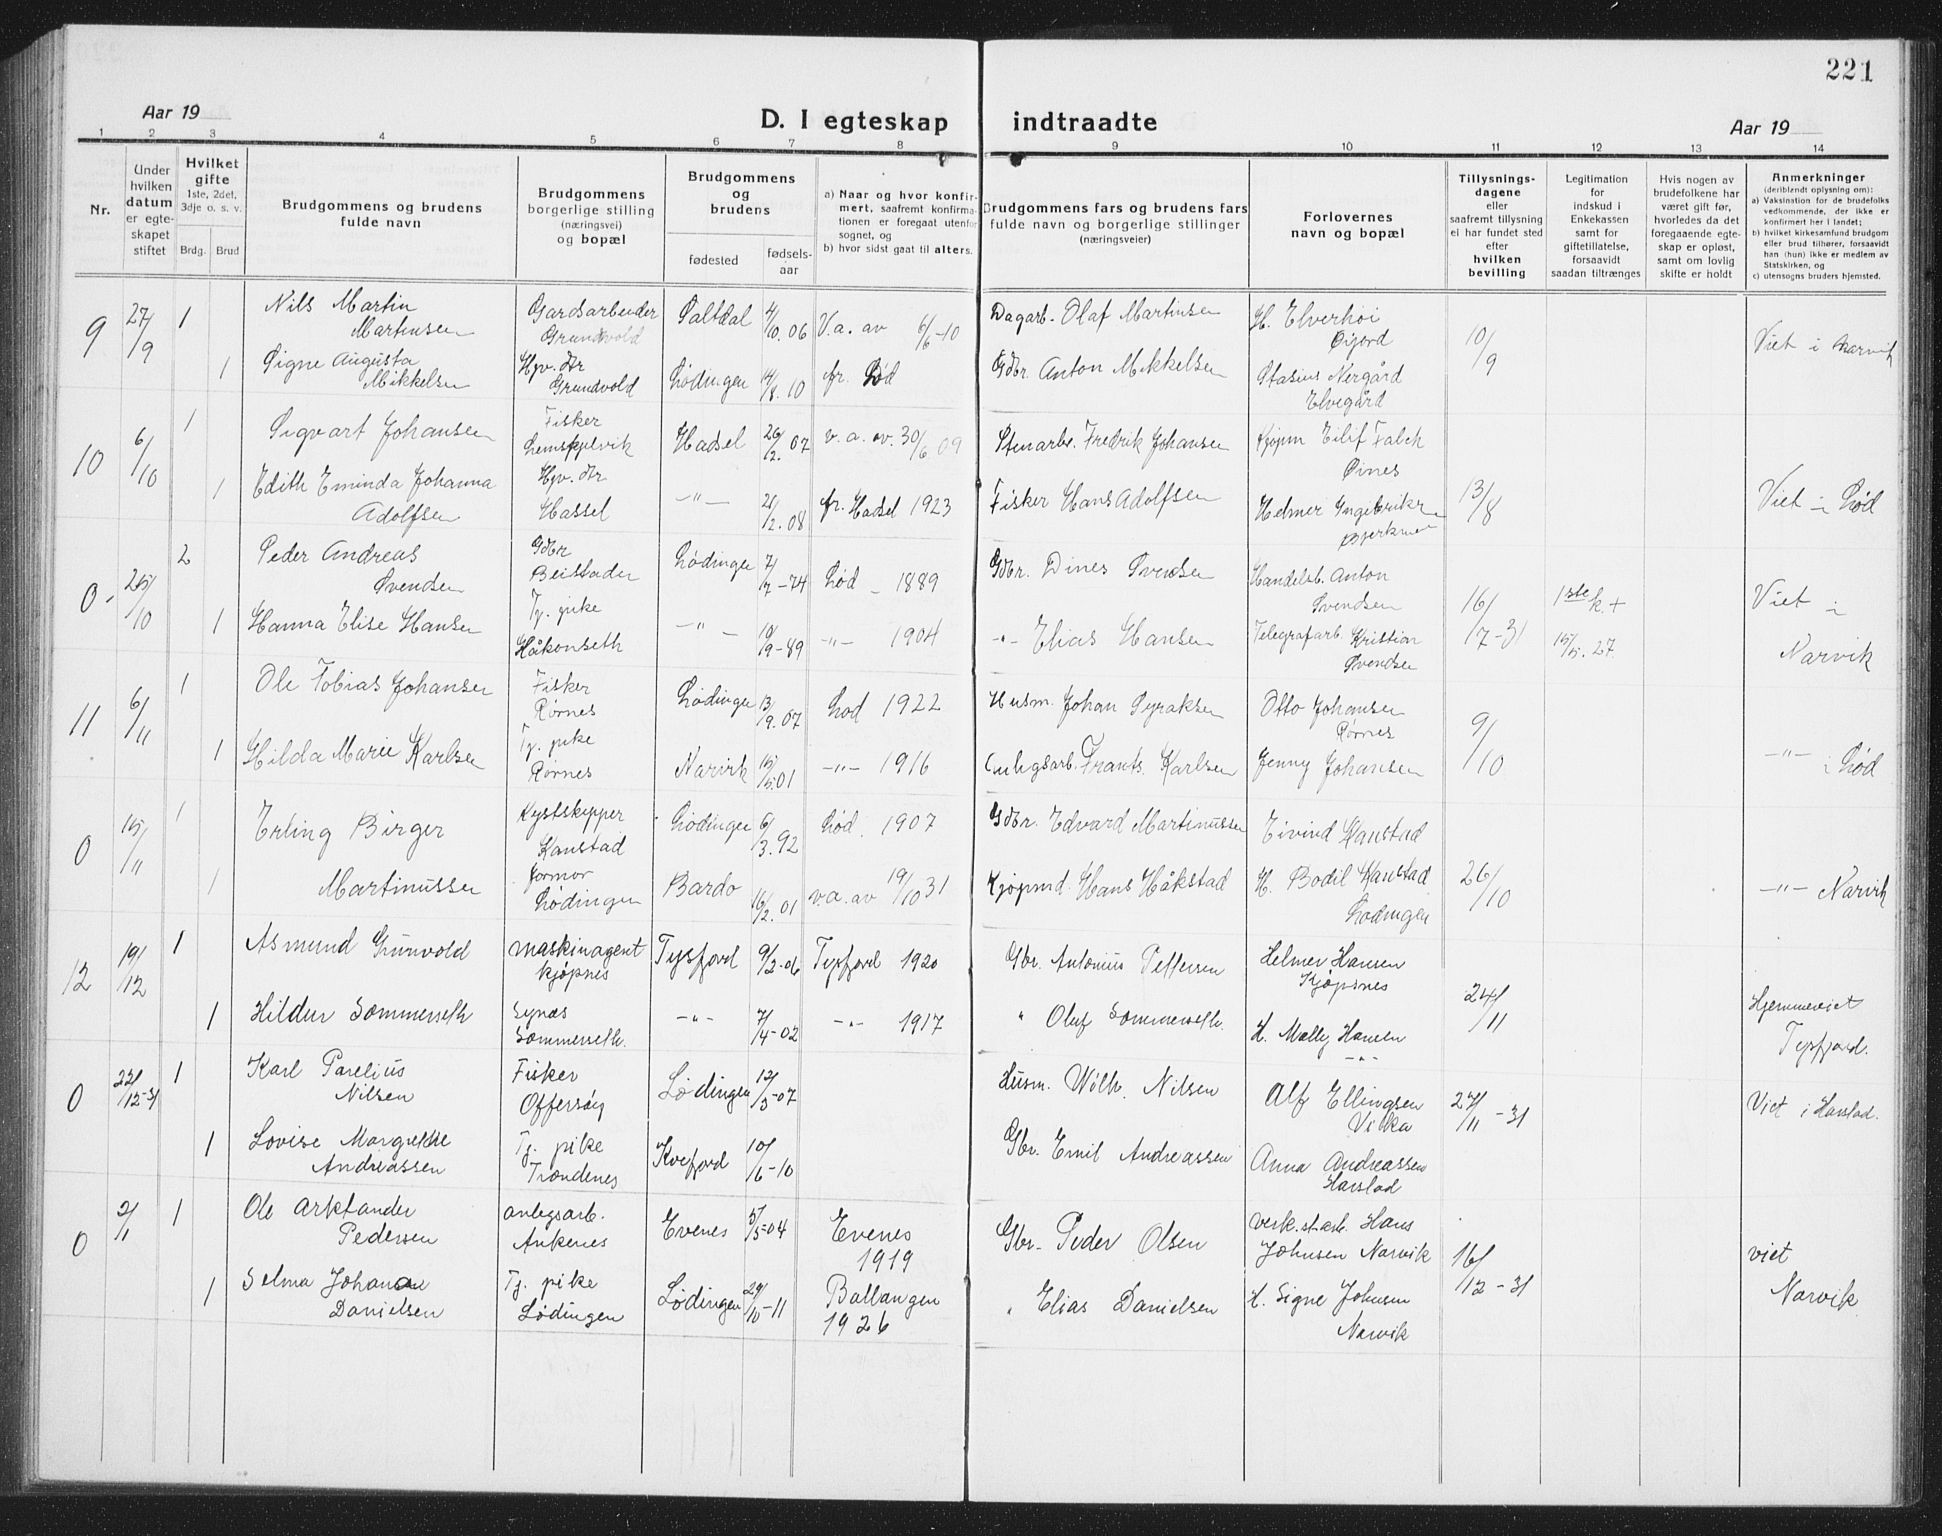 221
Aar 19
D. I egteskap indtraadte
Aar 19
1 2 3 4 5 6 7 8 9 10 11 12 13 14
Nr.
Under hvilken datum er egteskapet stiftet
Hvilket gifte
1ste, 2det, 3dje o. s. v.
Brdg. Brud
Brudgommens og brudens fulde navn
Brudgommens borgerlige stilling (næringsvei) og bopæl
Brudgommens og brudens
fødested
fødselsaar
a) Naar og hvor konfirmert, saafremt konfirmationen er foregaat utenfor sognet, og
b) hvor sidst gaat til alters.
Brudgommens fars og brudens fars fulde navn og borgerlige stillinger (næringsveier)
Forlovernes navn og bopæl
Tillysningsdagene eller saafremt tillysning ei har fundet sted efter hvilken bevilling
Legitimation for indskud i Enkekassen samt for giftetillatelse, forsaavidt saadan tiltrænges
Hvis nogen av brudefolkene har været gift før, hvorledes da det foregaaende egteskap er opløst, samt om lovlig skifte er holdt
Anmerkninger (deriblandt oplysning om):
a) Vaksinstion for de brudefolks vedkommende, der ikke er konfirmert her i landet;
b) hvilket kirkesamfund brudgom eller brud tilhører, forsaavidt han (hun) ikke er medlem av Statskirken, og
c) utensogns bruders hjemsted.
9 27/9 1 Nils Martin Martinsen Gardsarbeider Grundvold Saltdal 4/10.06 V.a. av 6/6-10 Dagarb. Olaf Martinsen H. Elverhøi Øijord 10/9 Viet i Narvik
1 Signe Augusta Mikkelsen Hgv. dtr Grundvold Lødingen 14/8.10 fr. Lød Gdbr. Anton Mikkelsen Stasius Nergård Elvegård
10 6/10 1 Sigvart Johansen Fisker Hadsel 26/2.07 v.a. av. 30/6 09 Stenarb. Fredrik Johansen Kjøpm Eilif Falch Øines 13/8 Viet i Lød
1 Edith Eminda Johanna Adolfsen Hgv. dtr Hassel -"- 21/2.08 fr. Hadsel 1923 Fisker Hans Adolfsen Helmer
0 - 25/10 2 Peder Andreas Svendsen Gdbr Lødingen 7/7-74 Lød - 1889 Gdbr. Dines Svendsen Handelsb. Anton Svendsen 16/7-31 1ste k + 15/5.27 Viet i Narvik
1 Hanna Elise Hansen Tj. pike Håkonseth -"- 10/9-89 -"- 1904 -"- Elias Hansen Telegrafarb. Kristian Svendsen
11 6/11 1 Ole Tobias Johansen Fisker Rørnes Lødingen 13/9.07 Lød 1922 Husm. Johan Syraksen Otto Johansen Rørnes 9/10 -"- i Lød
1 Hilda Marie Karlsen Tj. pike Rørnes Narvik 15/5.01 -"- 1916 Frants Karlsen Jenny Johansen
0 15/11 1 Erling Birger Martinussen Kystskipper Kanstad Lødingen 6/3.92 Lød. 1907 Gdbr. Edvard Martinussen Eivind Kanstad 26/10 -"- Narvik
1 Jormor Lødingen Bardo 16/2.01 v.a. av 19/10 31 Kjøpmd. Hans Håkstad H. Bodil Kanstad Lødingen
12 19/12 1 Asmund Gunvold maskinagent Kjøpnes Tysfjord 9/2-06 Tysfjord 1920 Gbr. Antonius Pettersen Helmer Hansen Kjøpsnes 24/11 Hjemmeviet Tysfjord.
1 Hildur Sommerseth Sommerseth. -"- 7/4-02 -"- 1917 " Oluf Sommerseth. H. Mally Hansen -"-
0 22/12-31 1 Karl Parelius Nilsen Fisker Offersøy Lødingen 12/3-07 Husm. Wilh. Nilsen Alf Ellingsen Vikka 27/11-31 Viet i Harstad.
1 Lovise Margrethe Andreassen Tj. pike Trondenes Kvefjord 10/6-10 Gbr. Emil Andreassen Anna Andreassen Harstad
0 2/1 1 Ole Arktander Pedersen anlegsarb. Ankenes Evenes 5/5-04 Evenes 1919 Gbr. Peder Olsen Hans Johnsen Narvik 16/12-31 viet Narvik
1 Selma Johanne Danielsen Tj. pike Lødingen Lødingen 29/10-11 Ballangen 1926 " Elias Danielsen H. Signe Johnsen Narvik